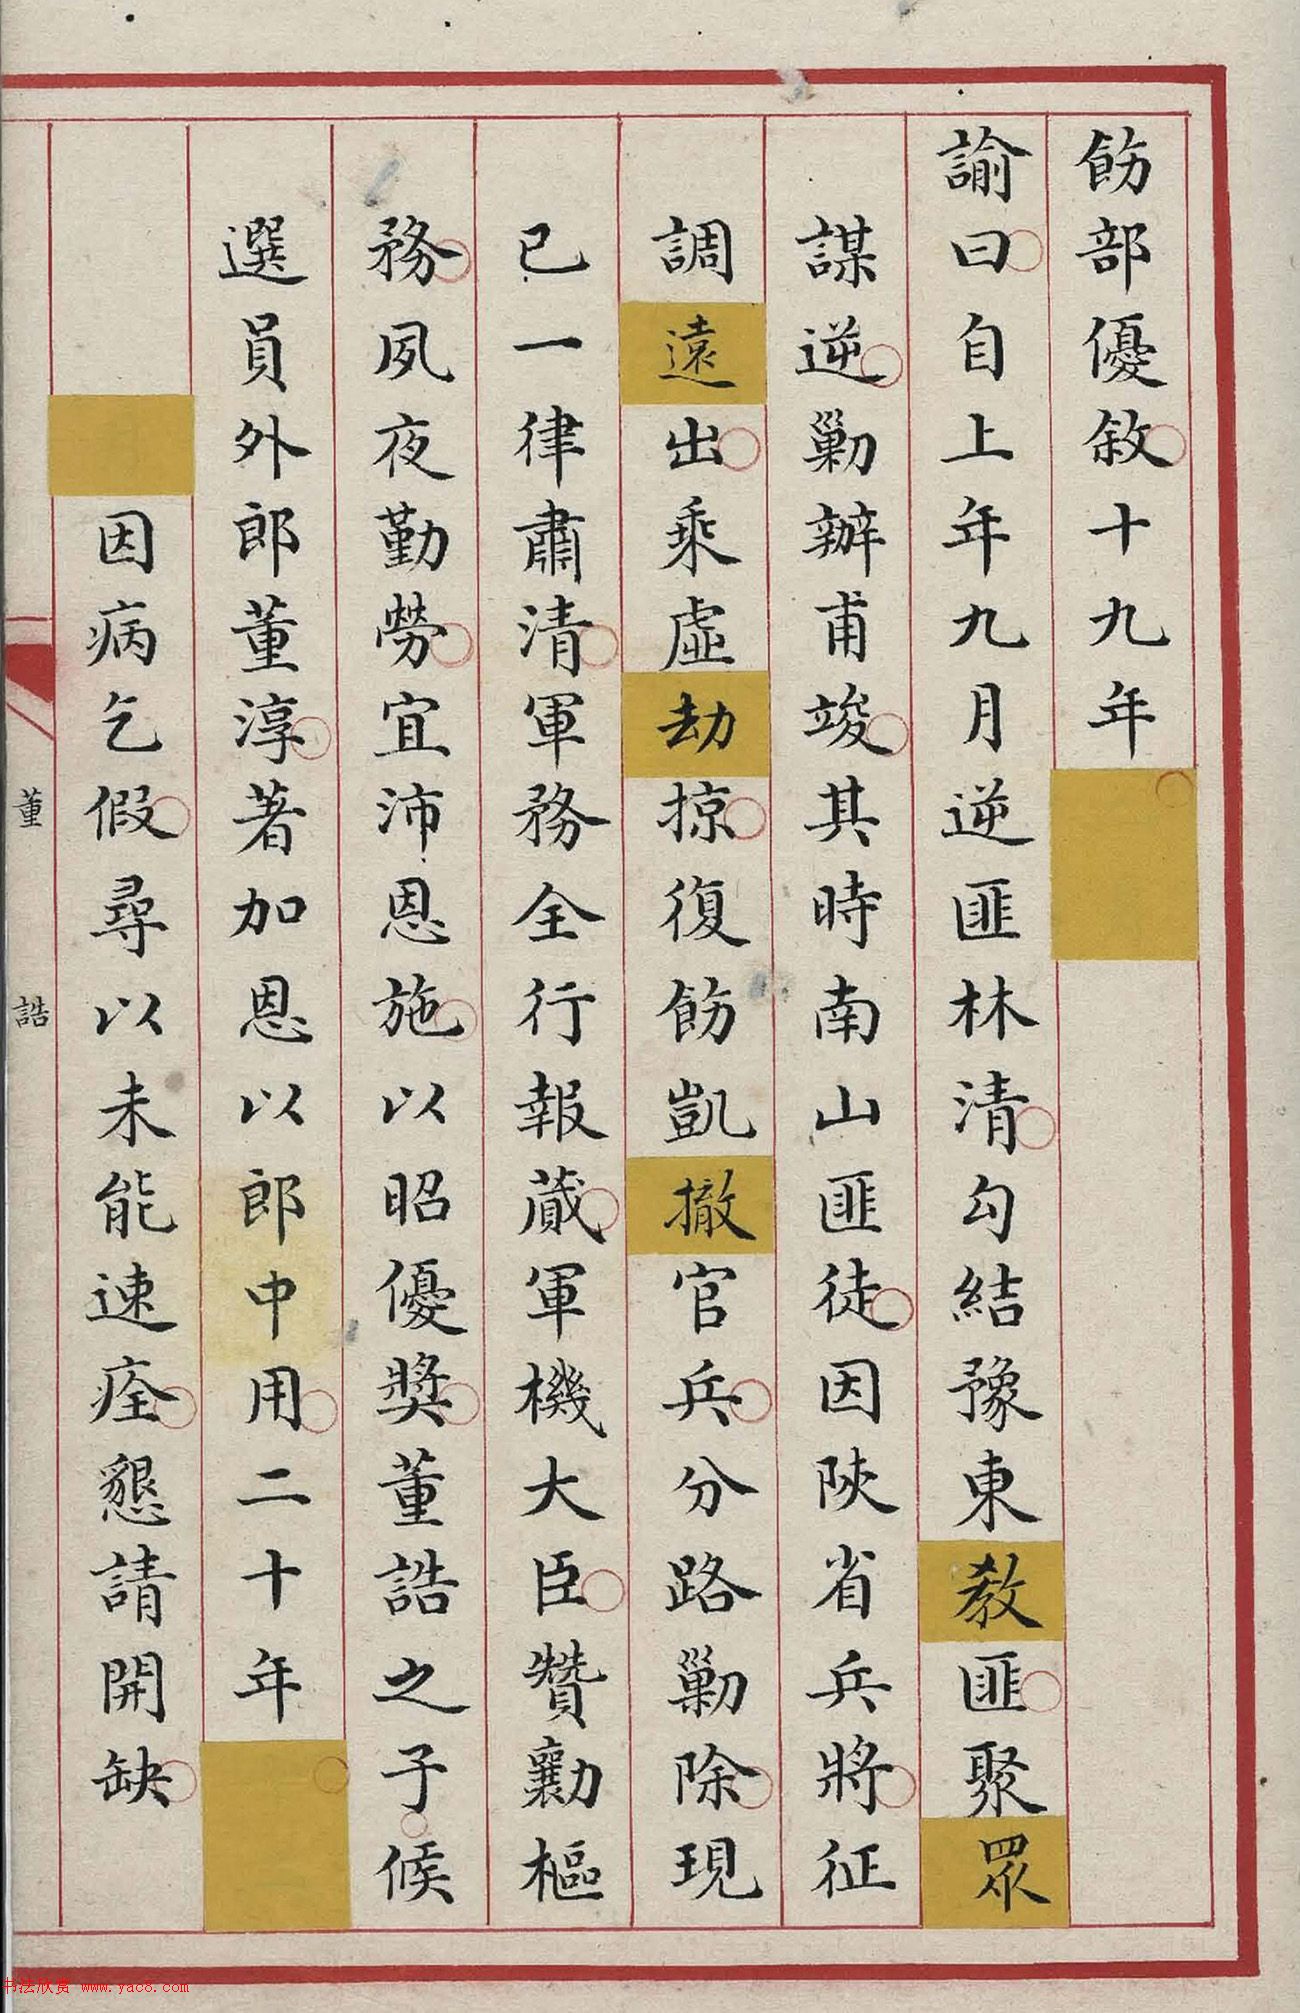 飭部優敘十九年
諭曰自上年九月逆匪林清勾結豫東教匪聚眾
謀逆勦辦甫竣其時南山匪徒因陝省兵將征
調遠出乘虛劫掠復飭凱撤官兵分路勦除現
已一律肅清軍務全行報蕆軍機大臣贊勷樞
務夙夜勤勞宜沛恩施以昭優獎董誥之子候
選員外郎董淳著加恩以郎中用二十年
因病乞假尋以未能速痊懇請開缺
董誥
书法欣赏 www.yac8.com